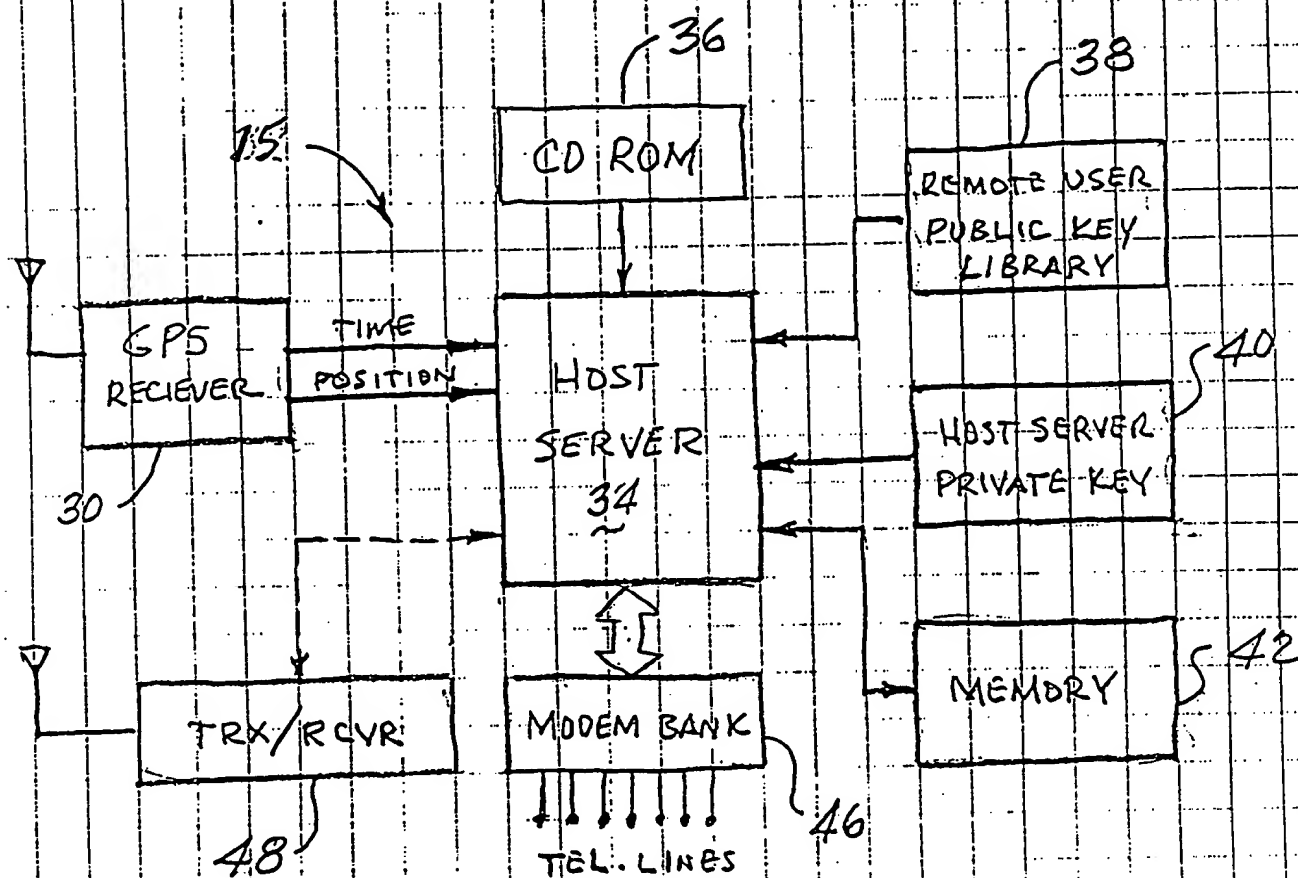 36
38
15
CD ROM
REMOTE USER
PUBLIC KEY
LIBRARY
GPS
RECIEVER
TIME
POSITION
HOST
SERVER
34
40
HOST SERVER
PRIVATE KEY
30
42
MEMORY
TRX/RCVR
MODEM BANK
46
48
TEL. LINES